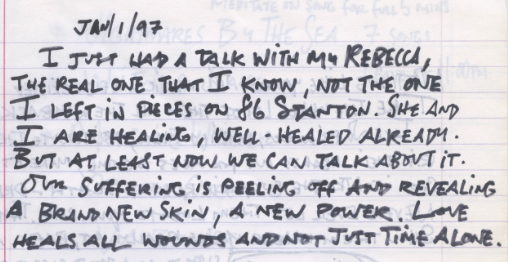 JAN/1/97
I JUST HAD A TALK WITH MY REBECCA,
THE REAL ONE THAT I KNOW, NOT THE ONE
I LEFT IN PIECES ON 86 STANTON. SHE AND
I ARE HEALING, WELL-HEALED ALREADY.
BUT AT LEAST NOW WE CAN TALK ABOUT IT.
OUR SUFFERING IS PEELING OFF AND REVEALING
A BRAND NEW SKIN, A NEW POWER. LOVE
HEALS ALL WOUNDS AND NOT JUST TIME ALONE.